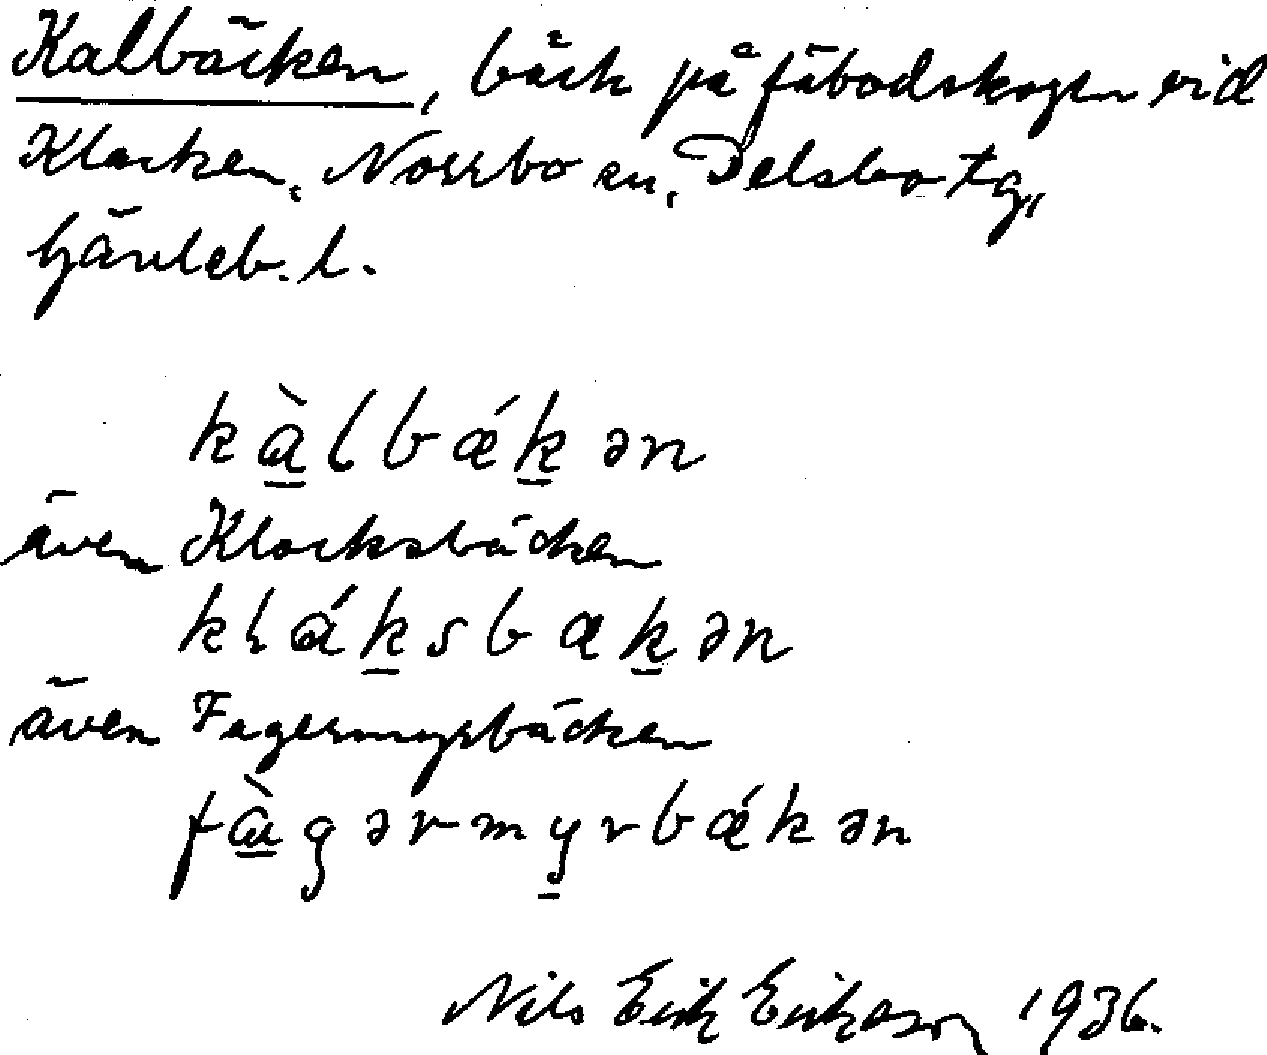 Kalbäcken, bäck på fäbodskogen vid
Klacken, Norrbo sn, Delsbo tg,
Gävleb. l.
kàlbǽkən
även Klacksbäcken
kláksbækən
även Fagermyrbäcken
fàgərmyrbǽkən
Nils Erik Erikson 1936.